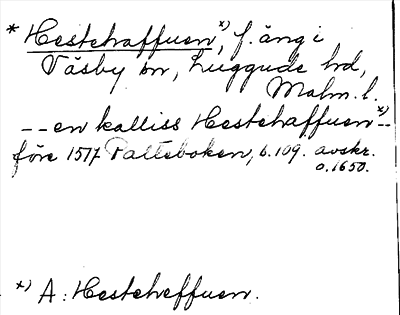 * Hestehaffuen x), f. äng i
Väsby sn, Luggude hd,
Malm. l.
-- en kalliss Hestehaffuen x) --
före 1517 Palteboken, s. 109. avskr.
o. 1650.
x) A: Hesteheffuen.